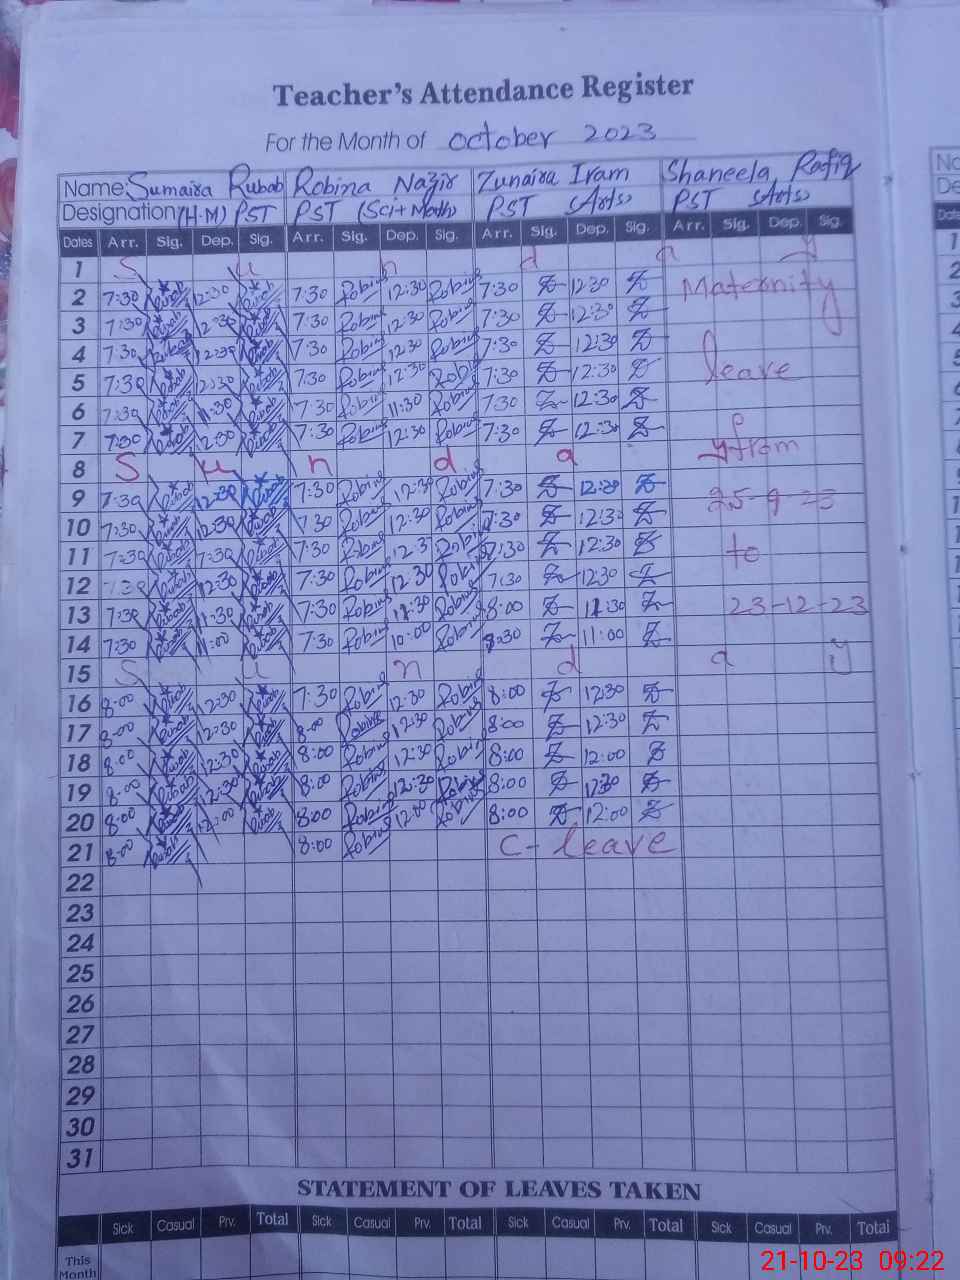 Teacher's Attendance Register
For the Month of October 2023
Name: Sumaira Rubab Robina Nazir Zunaira Iram Shaneela Rafiq
Designation (H.M) PST PST (Sci+Math) PST (Arts) PST (Arts)
Dates Arr. Sig. Dep. Sig. Arr. Sig. Dep. Sig. Arr. Sig. Dep. Sig. Arr. Sig. Dep. Sig.
1 S u n d a y
2 7:30 Rubab 12:30 Rubab 7:30 Robina 12:30 Robina 7:30 Z 12:30 Z Maternity
3 7:30 Rubab 12:30 Rubab 7:30 Robina 12:30 Robina 7:30 Z 12:30 Z
4 7:30 Rubab 12:30 Rubab 7:30 Robina 12:30 Robina 7:30 Z 12:30 Z
5 7:30 Rubab 12:30 Rubab 7:30 Robina 12:30 Robina 7:30 Z 12:30 Z leave
6 7:30 Rubab 11:30 Rubab 7:30 Robina 11:30 Robina 7:30 Z 12:30 Z
7 7:30 Rubab 12:30 Rubab 7:30 Robina 12:30 Robina 7:30 Z 12:30 Z from
8 S u n d a
9 7:30 Rubab 12:30 Rubab 7:30 Robina 12:30 Robina 7:30 Z 12:30 Z 25-9-23
10 7:30 Rubab 12:30 Rubab 7:30 Robina 12:30 Robina 7:30 Z 12:30 Z
11 7:30 Rubab 7:30 Rubab 7:30 Robina 12:3 Robina 7:30 Z 12:30 Z to
12 7:30 Rubab 12:30 Rubab 7:30 Robina 12:30 Robina 7:30 Z 12:30 Z
13 7:30 Rubab 11:30 Rubab 7:30 Robina 11:30 Robina 8:00 Z 11:30 Z 23-12-23
14 7:30 Rubab 11:00 Rubab 7:30 Robina 10:00 Robina 8:30 Z 11:00 Z
15 S u n d a y
16 8:00 Rubab 12:30 Rubab 7:30 Robina 12:30 Robina 8:00 Z 12:30 Z
17 8:00 Rubab 12:30 Rubab 8:00 Robina 12:30 Robina 8:00 Z 12:30 Z
18 8:00 Rubab 12:30 Rubab 8:00 Robina 12:30 Robina 8:00 Z 12:00 Z
19 8:00 Rubab 12:30 Rubab 8:00 Robina 12:30 Robina 8:00 Z 12:30 Z
20 8:00 Rubab 12:00 Rubab 8:00 Robina 12:00 Robina 8:00 Z 12:00 Z
21 8:00 Rubab 8:00 Robina C- leave
22
23
24
25
26
27
28
29
30
31
STATEMENT OF LEAVES TAKEN
Sick Casual Prv. Total Sick Casual Prv. Total Sick Casual Prv. Total Sick Casual Prv. Total
This
Month
21-10-23 09:22